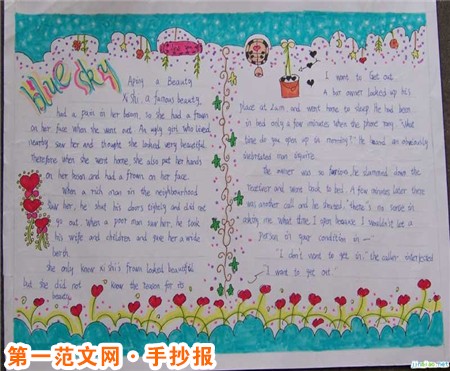 blue sky
Aping a Beauty
Xi shi, a famous beauty,
had a pain in her bosom, so she had a frown
on her face when she went out. An ugly girl who lived
nearby saw her and thought she looked very beautiful.
Therefore when she went home, she also put her hands
on her bosom and had a frown on her face.
When a rich man in the neighbourhood
saw her, he shut his doors tightly and did not
go out. When a poor man saw her, he took
his wife and children and gave her a wide
berth.
She only knew Xi shi's frown looked beautiful
but she did not know the reason for its
beauty.
I want to get out
A bar owner locked up his
place at 2 a.m. and went home to sleep. He had been
in bed only a few minutes when the phone rang. "What
time do you open up in morning?" He heard an obviously
inebriated man inquire.
The owner was so furious, he slammed down the
receiver and went back to bed. A few minutes later there
was another call and he
"there's no sense in
asking me what time I open because I wouldn't let a
person in your condition in —
"I don't want to get in," the caller interjected
I want to get out."
第一范文网·手抄报